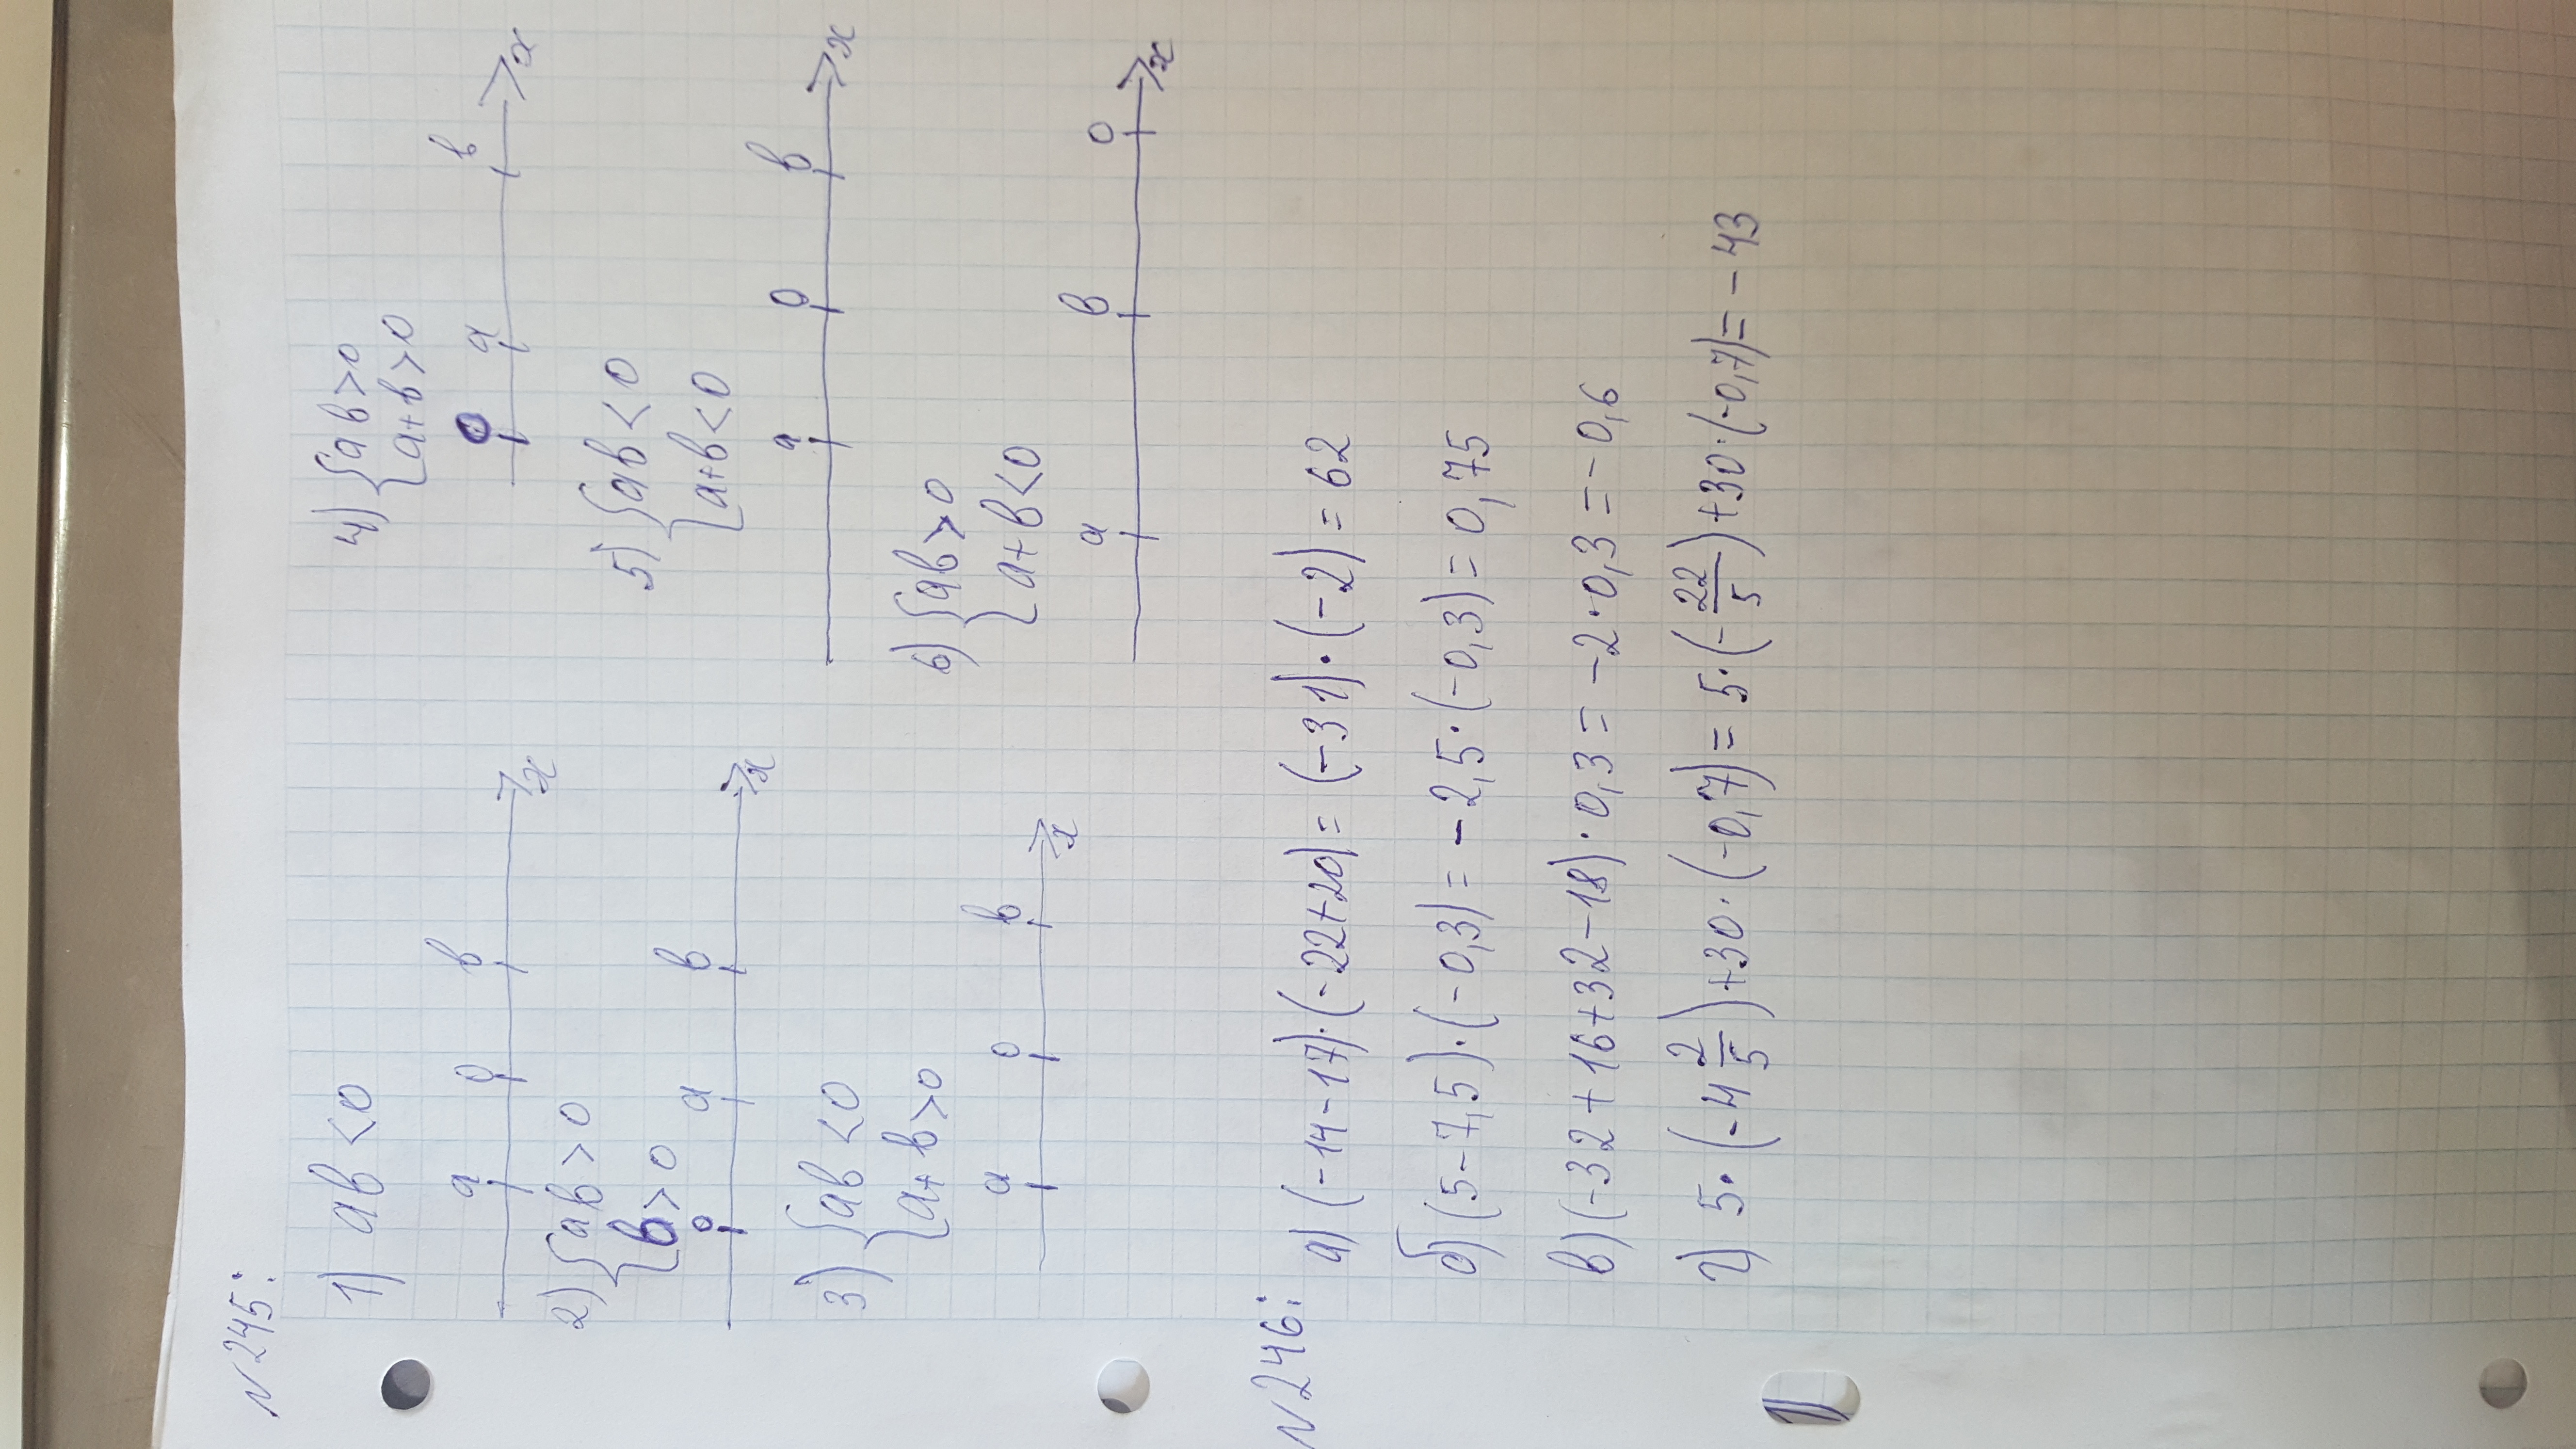 N245:
1) ab < 0
a 0 b x
2) { ab > 0
b > 0
0 a b x
3) { ab < 0
a + b > 0
a 0 b x
4) { ab > 0
a + b > 0
0 a b x
5) { ab < 0
a + b < 0
a 0 b x
6) { ab > 0
a + b < 0
a b 0 x
N246:
а) (-14-17)·(-22+20) = (-31)·(-2) = 62
б) (5-7,5)·(-0,3) = -2,5·(-0,3) = 0,75
в) (-32+16+32-18)·0,3 = -2·0,3 = -0,6
г) 5·(-4 2/5)+30·(-0,7) = 5·(-22/5)+30·(-0,7) = -43